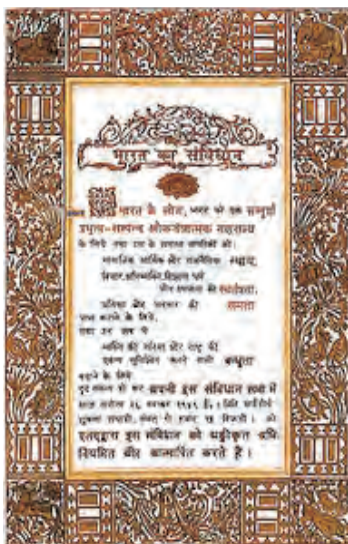 भारत का संविधान
भारत के लोग, भारत को एक सम्पूर्ण
प्रभुत्व-सम्पन्न लोकतंत्रात्मक गणराज्य
के लिये तथा उस के समस्त नागरिकों को :
सामाजिक आर्थिक और राजनैतिक न्याय,
विचार, अभिव्यक्ति, विश्वास, धर्म
और उपासना की स्वतंत्रता,
प्रतिष्ठा और अवसर की समता
प्राप्त कराने के लिये,
तथा उन सब में
व्यक्ति की गरिमा और राष्ट्र की
एकता सुनिश्चित करने वाली बन्धुता
बढ़ाने के लिये
दृढ़ संकल्प हो कर अपनी इस संविधान सभा में
आज तारीख २६ नवम्बर १९४९ ई. (मिति मार्गशीर्ष
शुक्ला सप्तमी, संवत् दो हजार छः विक्रमी) को
एतद्द्वारा इस संविधान को अङ्गीकृत अधि-
नियमित और आत्मार्पित करते हैं।